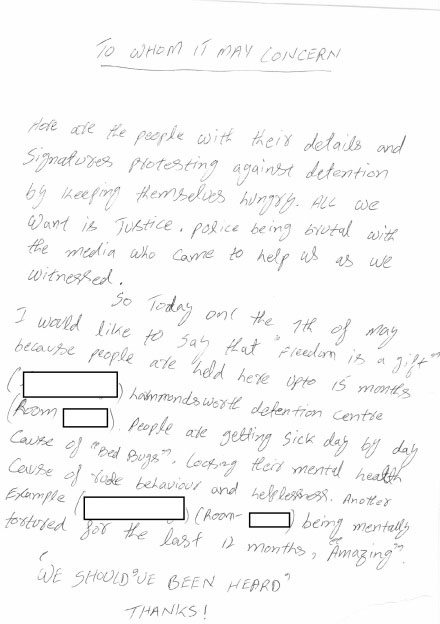 TO WHOM IT MAY CONCERN
Here are the people with their details and
Signatures protesting against detention
by keeping themselves hungry. ALL we
want is Justice. police being brutal with
the media who came to help us as we
witnessed.
So Today on the 7th of may
I would like to say that "Freedom is a gift"
because people are held here upto 15 months
( ) hammondsworth detention centre
(Room ). People are getting sick day by day
Cause of "Bed Bugs". Loosing their mental health
Cause of rude behaviour and helplessness. Another
Example ( ) (Room- ) being mentally
tortured for the last 12 months, "Amazing".
"WE SHOULD'VE BEEN HEARD"
THANKS!